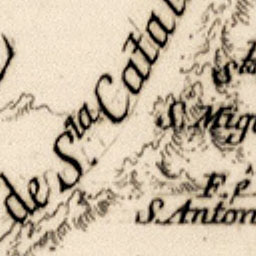 de S.ta Catal
Sta
S. Migu
F. é
S. Anton